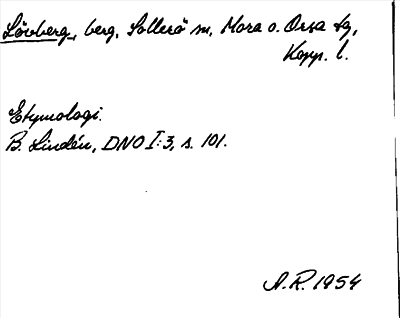 Lövberg, berg, Sollerö sn, Mora o. Orsa tg,
Kopp. l.
Etymologi.
B. Lindén, DNO I:3, s. 101.
A.R. 1954